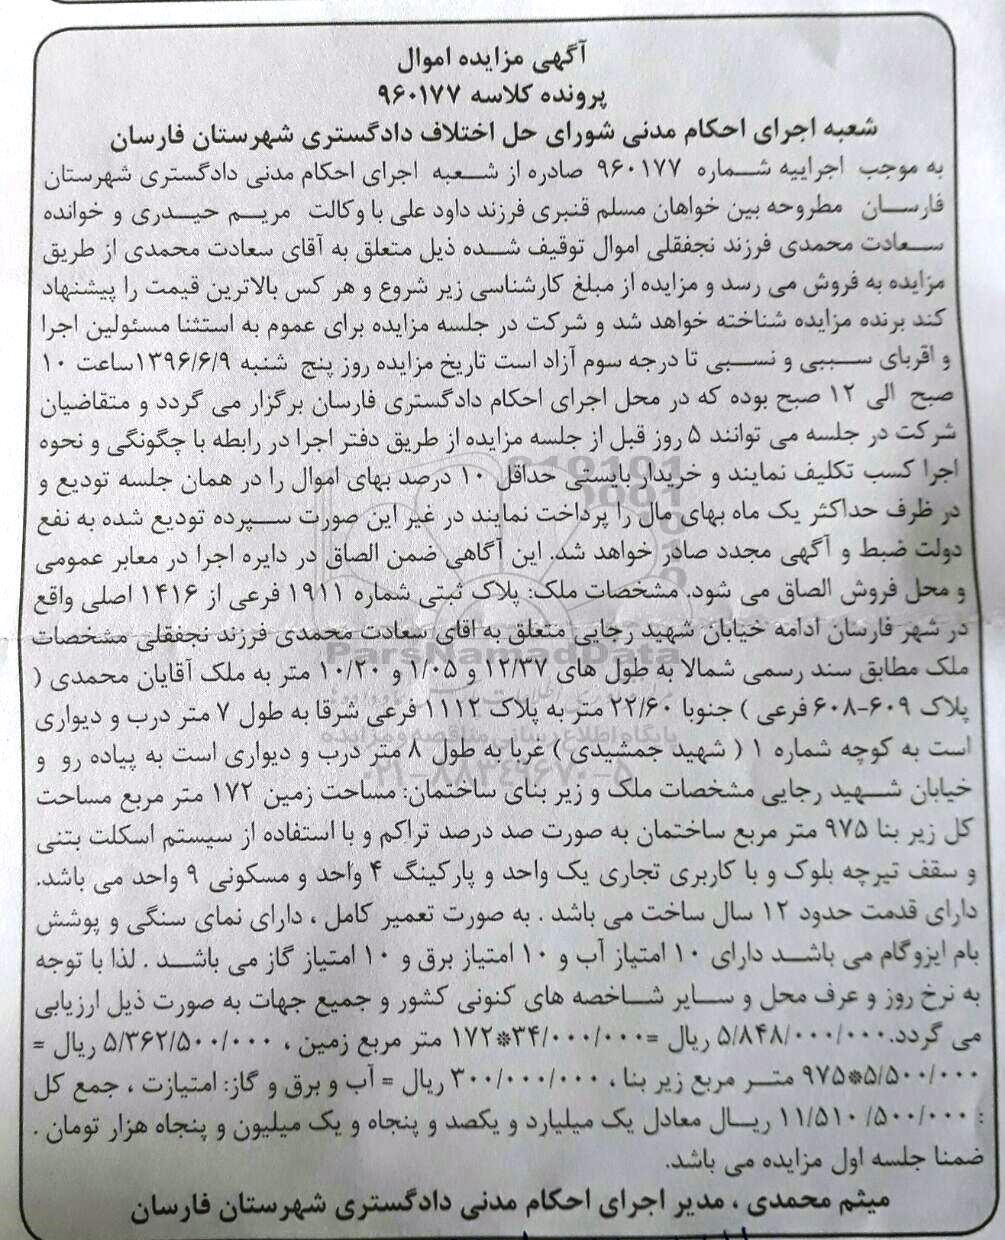 آگهی مزایده اموال
پرونده کلاسه ۹۶۰۱۷۷
شعبه اجرای احکام مدنی شورای حل اختلاف دادگستری شهرستان فارسان
به موجب اجراییه شماره ۹۶۰۱۷۷ صادره از شعبه اجرای احکام مدنی دادگستری شهرستان
فارسان مطروحه بین خواهان مسلم قنبری فرزند داود علی با وکالت مریم حیدری و خوانده
سعادت محمدی فرزند نجفقلی اموال توقیف شده ذیل متعلق به آقای سعادت محمدی از طریق
مزایده به فروش می رسد و مزایده از مبلغ کارشناسی زیر شروع و هر کس بالاترین قیمت را پیشنهاد
کند برنده مزایده شناخته خواهد شد و شرکت در جلسه مزایده برای عموم به استثنا مسئولین اجرا
و اقربای سببی و نسبی تا درجه سوم آزاد است تاریخ مزایده روز پنج شنبه ۱۳۹۶/۶/۹ساعت ۱۰
صبح الی ۱۲ صبح بوده که در محل اجرای احکام دادگستری فارسان برگزار می گردد و متقاضیان
شرکت در جلسه می توانند ۵ روز قبل از جلسه مزایده از طریق دفتر اجرا در رابطه با چگونگی و نحوه
اجرا کسب تکلیف نمایند و خریدار بایستی حداقل ۱۰ درصد بهای اموال را در همان جلسه تودیع و
در ظرف حداکثر یک ماه بهای مال را پرداخت نمایند در غیر این صورت سپرده تودیع شده به نفع
دولت ضبط و آگهی مجدد صادر خواهد شد. این آگاهی ضمن الصاق در دایره اجرا در معابر عمومی
و محل فروش الصاق می شود. مشخصات ملک: پلاک ثبتی شماره ۱۹۱۱ فرعی از ۱۴۱۶ اصلی واقع
در شهر فارسان ادامه خیابان شهید رجایی متعلق به اقای سعادت محمدی فرزند نجفقلی مشخصات
ParsNamadData
ملک مطابق سند رسمی شمالا به طول های ۱۲/۳۷ و ۱/۰۵ و ۱۰/۲۰ متر به ملک آقایان محمدی (
پلاک ۶۰۹-۶۰۸ فرعی ) جنوبا ۲۲/۶۰ متر به پلاک ۱۱۱۲ فرعی شرقا به طول ۷ متر درب و دیواری
پایگاه اطلاع رسانی مناقصه و مزایده
است به کوچه شماره ۱ ( شهید جمشیدی ) غربا به طول ۸ متر درب و دیواری است به پیاده رو و
۰۲۱-۸۸۳۴۹۶۷۰-۵
خیابان شهید رجایی مشخصات ملک و زیر بنای ساختمان: مساحت زمین ۱۷۲ متر مربع مساحت
کل زیر بنا ۹۷۵ متر مربع ساختمان به صورت صد درصد تراکم و با استفاده از سیستم اسکلت بتنی
و سقف تیرچه بلوک و با کاربری تجاری یک واحد و پارکینگ ۴ واحد و مسکونی ۹ واحد می باشد.
دارای قدمت حدود ۱۲ سال ساخت می باشد . به صورت تعمیر کامل ، دارای نمای سنگی و پوشش
بام ایزوگام می باشد دارای ۱۰ امتیاز آب و ۱۰ امتیاز برق و ۱۰ امتیاز گاز می باشد . لذا با توجه
به نرخ روز و عرف محل و سایر شاخصه های کنونی کشور و جمیع جهات به صورت ذیل ارزیابی
می گردد.۵/۸۴۸/۰۰۰/۰۰۰ ریال =۳۴/۰۰۰/۰۰۰*۱۷۲ متر مربع زمین ، ۵/۳۶۲/۵۰۰/۰۰۰ ریال =
۵/۵۰۰/۰۰۰*۹۷۵ متر مربع زیر بنا ، ۳۰۰/۰۰۰/۰۰۰ ریال = آب و برق و گاز: امتیازت ، جمع کل
: ۱۱/۵۱۰/۵۰۰/۰۰۰ ریال معادل یک میلیارد و یکصد و پنجاه و یک میلیون و پنجاه هزار تومان .
ضمنا جلسه اول مزایده می باشد.
میثم محمدی ، مدیر اجرای احکام مدنی دادگستری شهرستان فارسان